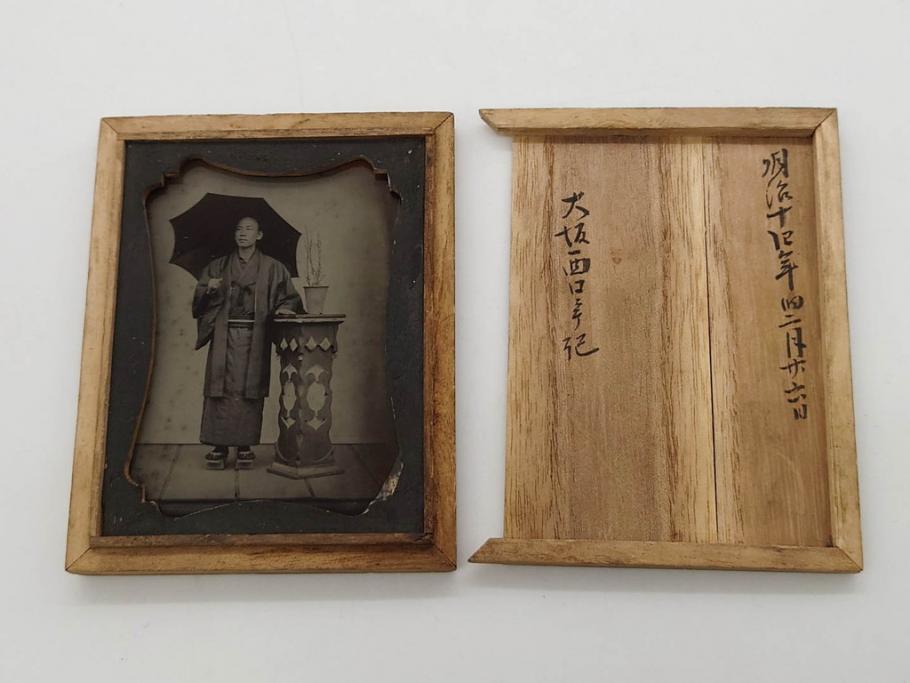 明治十年旧二月廿六日
大坂西口